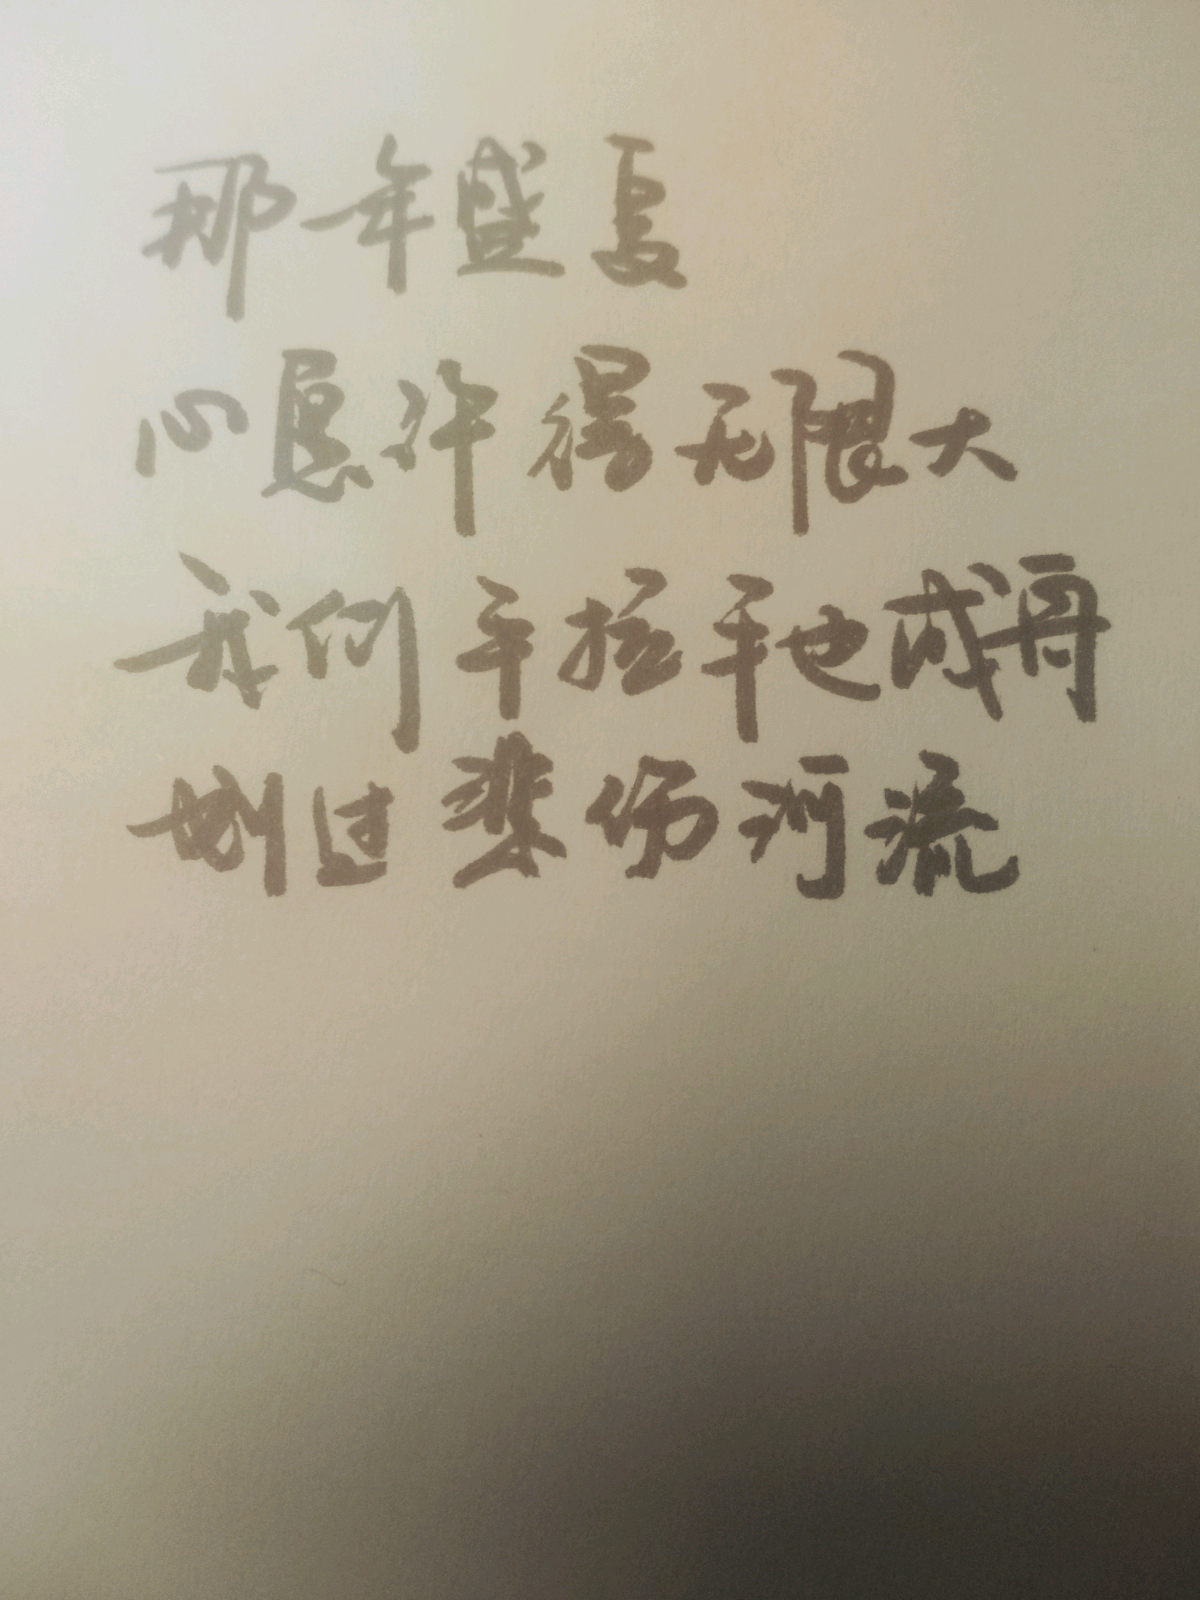 那年盛夏
心愿许得无限大
我们手拉手也成舟
划过悲伤河流